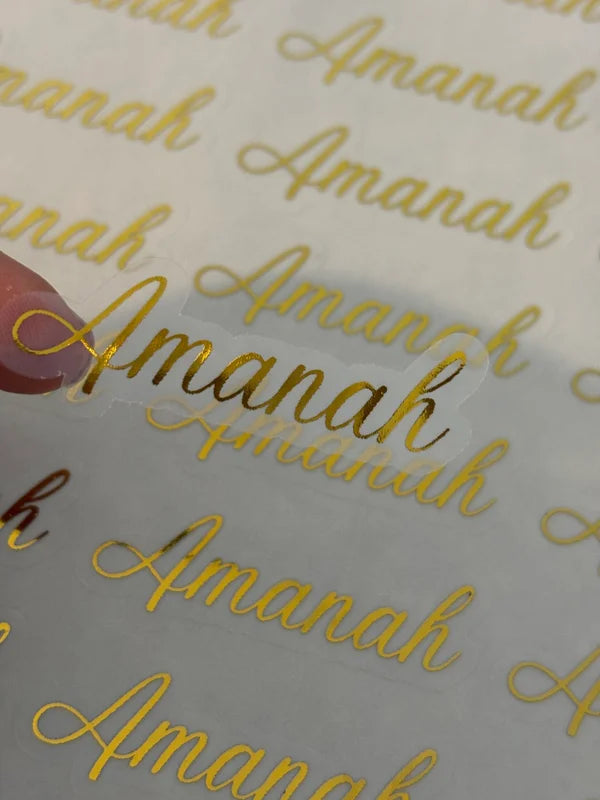 Amanah
manah Amanah
manah Amanah
Amanah
Amanah
h Amanah
Amanah